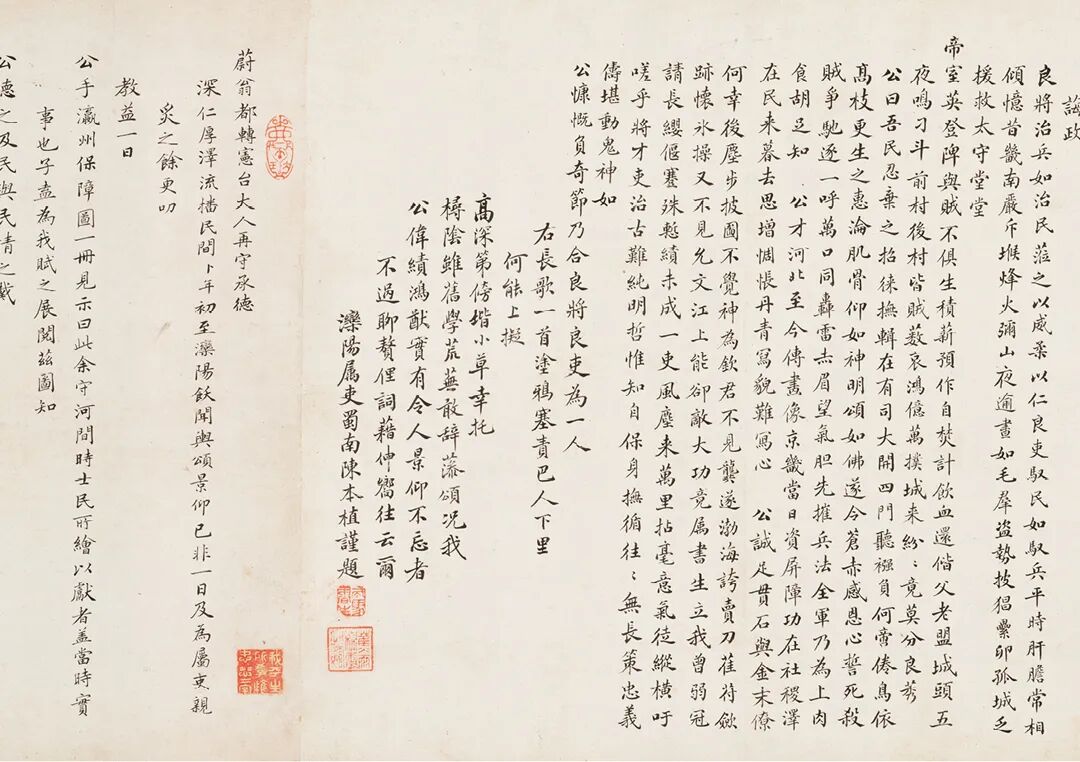 誨政
良將治兵如治民蒞之以威柔以仁良吏馭民如馭兵平時肝膽常相
傾憶昔畿南嚴斥堠烽火彌山夜逾晝如毛羣盜勢披猖纍卵孤城乏
援救太守堂堂
帝室英登陴與賊不俱生積薪預作自焚計飲血還偕父老盟城頭五
夜鳴刁斗前村後村皆賊藪哀鴻億萬撲城来紛〻竟莫分良莠
公曰吾民忍棄之招徠撫輯在有司大開四門聽襁負何啻倦鳥依
髙枝更生之惠淪肌骨仰如神明頌如佛遂令蒼赤感恩心誓死殺
賊爭馳逐一呼萬口同轟雷赤眉望氣胆先摧兵法全軍乃為上肉
食胡足知 公才河北至今傳畫像京畿當日資屏障功在社稷澤
在民来暮去思增惆悵丹青寫貌難寫心 公誠足貫石與金末僚
何幸後塵步披圖不覺神為欽君不見龔遂渤海誇賣刀萑苻斂
跡懷氷操又不見允文江上能卻敵大功竟属書生立我曾弱冠
請長纓偃蹇殊慙績未成一吏風塵来萬里拈毫意氣徒縱橫吁
嗟乎將才吏治古難純明哲惟知自保身撫循往〻無長策忠義
儔堪動鬼神如
公慷慨負奇節乃合良將良吏為一人
右長歌一首塗鴉塞責巴人下里
何能上擬
髙深第傍堦小草幸托
樾蔭雖舊學荒蕪敢辭藻頌况我
公偉績鴻猷實有令人景仰不忘者
不過聊贅俚詞藉伸嚮往云爾
灤陽属吏蜀南陳本植謹題
蔚翁都轉憲台大人再守承德
深仁厚澤流播民間卜年初至灤陽飫聞輿頌景仰已非一日及為属吏親
炙之餘更叨
教益一日
公手瀛州保障圖一冊見示曰此余守河間時士民所繪以獻者盖當時實
事也子盍為我賦之展閱茲圖知
公德之及民與民情之戴